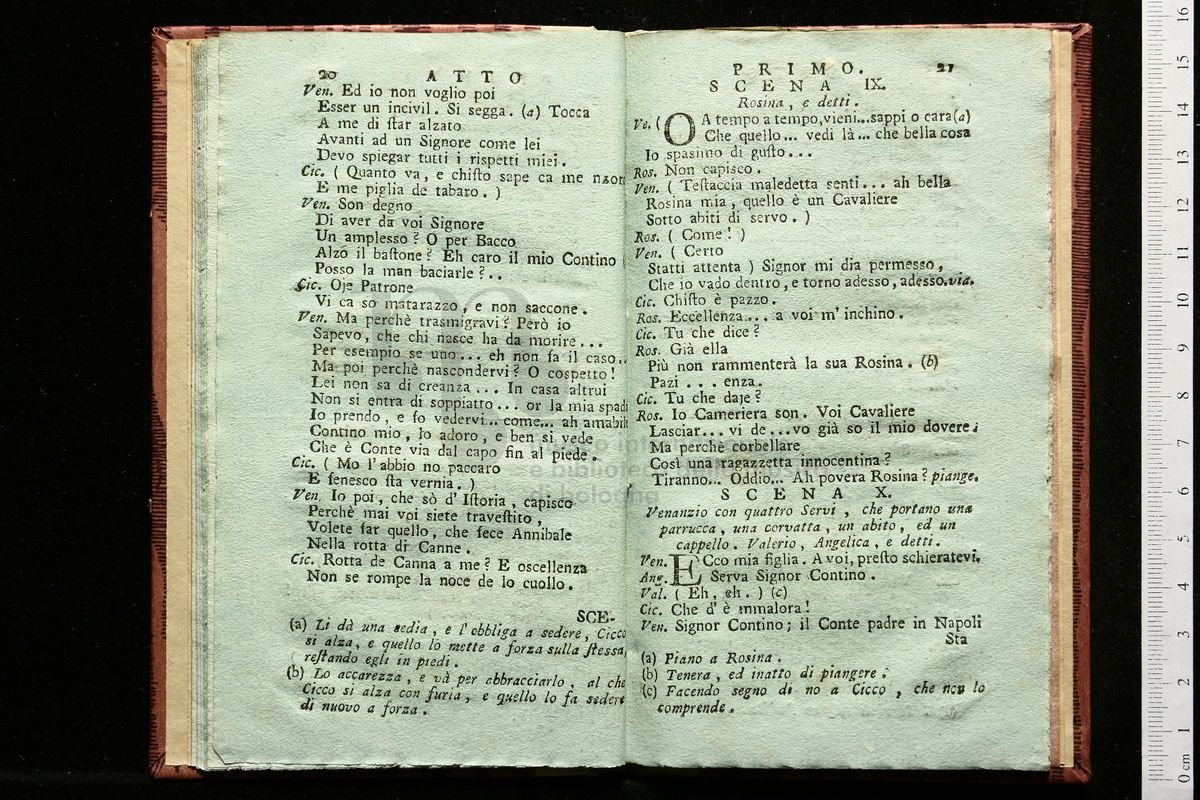 20 ATTO
Ven. Ed io non voglio poi
Esser un incivil. Si segga. (a) Tocca
A me di ſtar alzato
Avanti ad un Signore come lei
Devo spiegar tutti i rispetti miei.
Cic. ( Quanto va, e chiſto sape ca me
E me piglia de tabaro. )
Ven. Son degno
Di aver da voi Signore
Un amplesso? O per Bacco
Alzo il baſtone? Eh caro il mio Contino
Posso la man baciarle?..
Cic. Oje Patrone
Vi ca so matarazzo, e non saccone.
Ven. Ma perchè trasmigravi? Però io
Sapevo, che chi nasce ha da morire...
Per esempio se uno... eh non fa il caso..
Ma poi perchè nascondervi? O cospetto!
Lei non sa di creanza... In casa altrui
Non si entra di soppiatto... or la mia spad
Io prendo, e fo vedervi... come... ah amabil
Contino mio, lo adoro, e ben si vede
Che è Conte via dal capo fin al piede.
Cic. ( Mo l'abbio no paccaro
E fenesco ſta vernia. )
Ven. Io poi, che sò d'Iſtoria, capisco
Perchè mai voi siete traveſtito,
Volete far quello, che fece Annibale
Nella rotta di Canne.
Cic. Rotta de Canna a me? E oscellenza
Non se rompe la noce de lo cuollo.
SCE-
(a) Li dà una sedia, e l'obbliga a sedere, Cicco
si alza, e quello lo mette a forza sulla ſtessa,
reſtando egli in piedi.
(b) Lo accarezza, e và per abbracciarlo, al che
Cicco si alza con furia, e quello lo fa sedere
di nuovo a forza.
PRIMO. 21
SCENA IX.
Rosina, e detti.
Ve. ( O A tempo a tempo, vieni...sappi o cara (a)
Che quello... vedi là... che bella cosa
Io spasimo di guſto...
Ros. Non capisco.
Ven. ( Teſtaccia maledetta senti... ah bella
Rosina mia, quello è un Cavaliere
Sotto abiti di servo. )
Ros. ( Come! )
Ven. ( Certo
Statti attenta ) Signor mi dia permesso,
Che io vado dentro, e torno adesso, adesso. via.
Cic. Chiſto è pazzo.
Ros. Eccellenza... a voi m'inchino.
Cic. Tu che dice?
Ros. Già ella
Più non rammenterà la sua Rosina. (b)
Pazi... enza.
Cic. Tu che daje?
Ros. Io Cameriera son. Voi Cavaliere
Lasciar... vi de...vo già so il mio dovere:
Ma perchè corbellare
Così una ragazzetta innocentina?
Tiranno... Oddio... Ah povera Rosina? piange.
SCENA X.
Venanzio con quattro Servi, che portano una
parrucca, una corvatta, un abito, ed un
cappello. Valerio, Angelica, e detti.
Ven. ECco mia figlia. A voi, preſto schieratevi.
Ang. Serva Signor Contino.
Val. ( Eh, eh. ) (c)
Cic. Che d'è mmalora!
Ven. Signor Contino; il Conte padre in Napoli
Sta
(a) Piano a Rosina.
(b) Tenera, ed inatto di piangere.
(c) Facendo segno di no a Cicco, che non lo
comprende.
16
15
14
13
12
11
10
9
8
7
6
5
4
3
2
1
0 cm